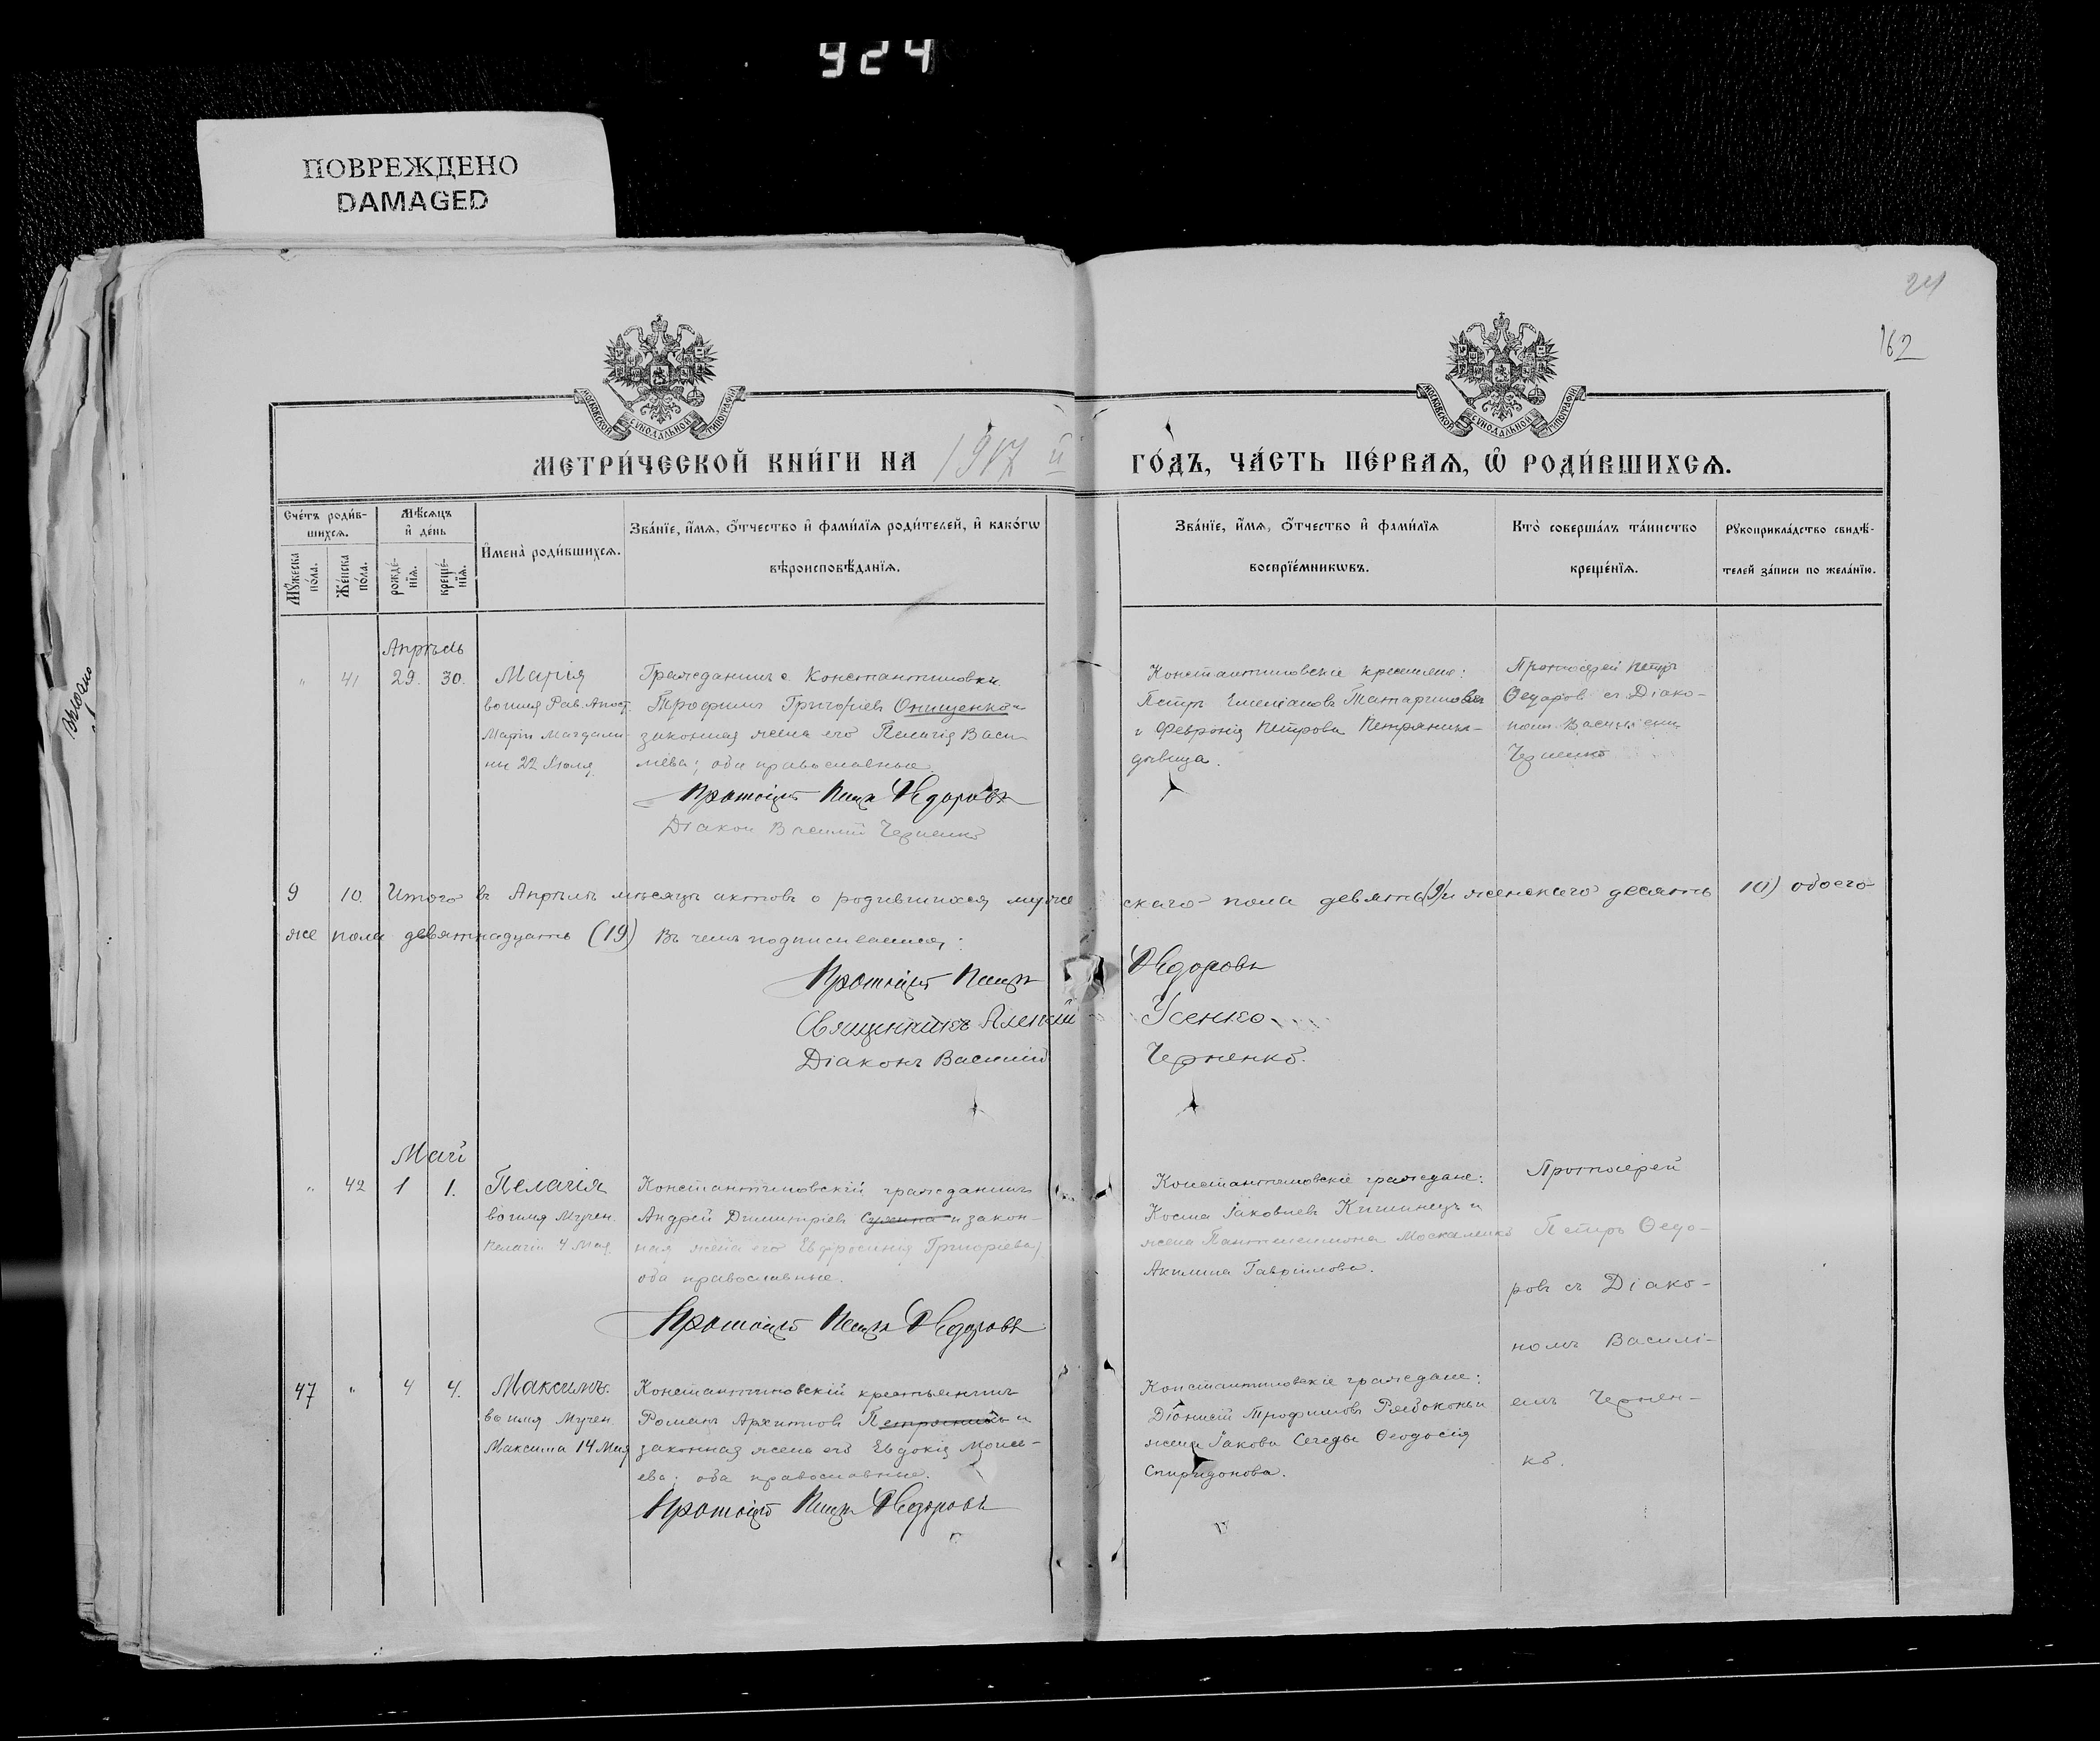 924
ПОВРЕЖДЕНО
DAMAGED
24
162
МОСКОВСКОЙ СѴНОДАЛЬНОЙ ТИПОГРАФІИ
МОСКОВСКОЙ СѴНОДАЛЬНОЙ ТИПОГРАФІИ
МЕТРИ́ЧЕСКОЙ КНИ́ГИ НА 1917 й ГО́ДЪ, ЧА́СТЬ ПЕ́РВАЯ, Ѡ РОДИ́ВШИХСЯ.
Сче́тъ роди́в-
шихся.
Мꙋ́жеска
по́ла.
Же́нска
по́ла.
Мѣ́сяцъ
и҆ де́нь
рожде́-
нїя.
креще́-
нїя.
И҆мена̀ роди́вшихся.
Зва́нїе, и҆́мя, ѻ҆́тчество и҆ фами́лїя роди́телей, и҆ како́гѡ
вѣроисповѣ́данїя.
Зва́нїе, и҆́мя, ѻ҆́тчество и҆ фами́лїя
воспрїе́мникѡвъ.
Кто̀ соверша́лъ та́инство
креще́нїя.
Рꙋкоприкла́дство свидѣ́-
телей за́писи по жела́нїю.
Апрѣль
" 41 29. 30. Марія
во имя Рав. Апост.
Маріи Магдали-
ны 22 Іюля.
Гражданинъ с. Константиновки
Трофимъ Григоріевъ Онищенко и
законная жена его Пелагія Васи-
ліева; оба православные.
Протоіерей Петръ Ѳедоровъ
Діакон Василій Черненко
Константиновскіе крестьяне:
Петръ Татариновъ
и Февронія Петрова
дѣвица.
Протоіерей Петръ
Ѳедоров съ Діако-
ном Василіем
Черненко
9 10. Итого въ Апрѣлѣ мѣсяцѣ актовъ о родившихся муже скаго пола девять (9) и женскаго десять 10) обоего
же пола девятнадцать (19) Въ чемъ подписываемся:
Протоіерей Петръ Ѳедоровъ
Священникъ Алексій Усенко
Діаконъ Василій Черненко.
Май
" 42 1 1. Пелагія
во имя Мучен.
Пелагіи 4 Мая
Константиновскій гражданинъ
Андрей Димитріевъ и закон-
ная жена его Евфросинія Григорієва;
оба православные.
Протоіерей Петръ Ѳедоровъ
Константиновскіе граждане:
Косма Іаковлевъ Кишинецъ и
жена Пантелеимона Москаленко
Акилина Гаврилова.
Протоіерей
Петръ Ѳедо-
ровъ съ Діако-
номъ Василі-
емъ Чернен-
ко.
47 " 4 4. Максимъ.
во имя Мучен.
Максима 14 Мая
Константиновскій крестьянинъ
Романъ Архипов и
законная жена его Евдокія Моисе-
ева; оба православные.
Протоіерей Петръ Ѳедоровъ
Константиновскіе граждане:
Діонисій Трофимовъ Рябоконь и
жена Іакова Середы Ѳеодосія
Спиридонова.